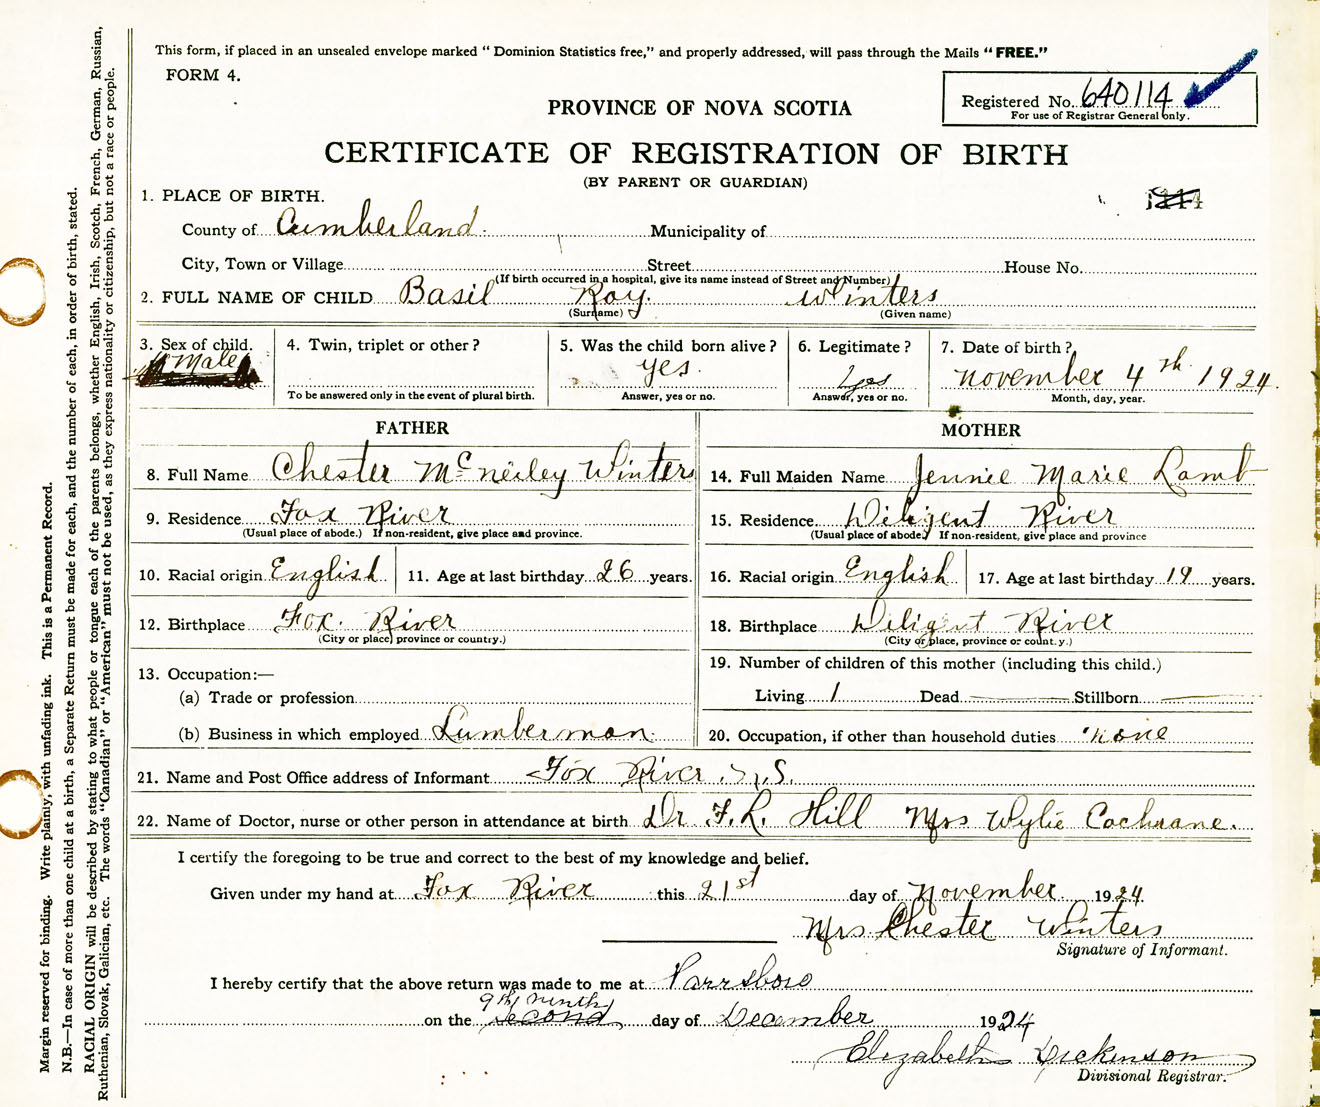 This form, if placed in an unsealed envelope marked "Dominion Statistics free," and properly addressed, will pass through the Mails "FREE."
FORM 4.
Registered No. 640114
For use of Registrar General only.
PROVINCE OF NOVA SCOTIA
CERTIFICATE OF REGISTRATION OF BIRTH
(BY PARENT OR GUARDIAN)
1. PLACE OF BIRTH.
County of Cumberland. Municipality of
City, Town or Village Street House No.
(If birth occurred in a hospital, give its name instead of Street and Number)
2. FULL NAME OF CHILD Basil Roy. Winters
(Surname) (Given name)
3. Sex of child. 4. Twin, triplet or other? 5. Was the child born alive? 6. Legitimate? 7. Date of birth?
Male yes. Yes November 4th 1924.
To be answered only in the event of plural birth. Answer, yes or no. Answer, yes or no. Month, day, year.
FATHER MOTHER
8. Full Name Chester McNeiley Winters 14. Full Maiden Name Jennie Marie Lamb
9. Residence Fox River 15. Residence Diligent River
(Usual place of abode.) If non-resident, give place and province. (Usual place of abode) If non-resident, give place and province
10. Racial origin English 11. Age at last birthday 26 years. 16. Racial origin English 17. Age at last birthday 19 years.
12. Birthplace Fox. River 18. Birthplace Diligent River
(City or place, province or country.) (City or place, province or country.)
13. Occupation:— 19. Number of children of this mother (including this child.)
(a) Trade or profession Living 1 Dead Stillborn
(b) Business in which employed Lumberman. 20. Occupation, if other than household duties none
21. Name and Post Office address of Informant Fox River. N.S.
22. Name of Doctor, nurse or other person in attendance at birth Dr F. L. Hill Mrs Wylie Cochrane.
I certify the foregoing to be true and correct to the best of my knowledge and belief.
Given under my hand at Fox River this 21st day of November 1924.
Mrs Chester Winters
Signature of Informant.
I hereby certify that the above return was made to me at Parrsboro
9th ninth
on the second day of December 1924
Elizabeth Dickinson
Divisional Registrar.
Margin reserved for binding. Write plainly, with unfading ink. This is a Permanent Record.
N.B.—In case of more than one child at a birth, a Separate Return must be made for each, and the number of each, in order of birth, stated.
RACIAL ORIGIN will be described by stating to what people or tongue each of the parents belongs, whether English, Irish, Scotch, French, German, Russian,
Ruthenian, Slovak, Galician, etc. The words "Canadian" or "American" must not be used, as they express nationality or citizenship, but not a race or people.